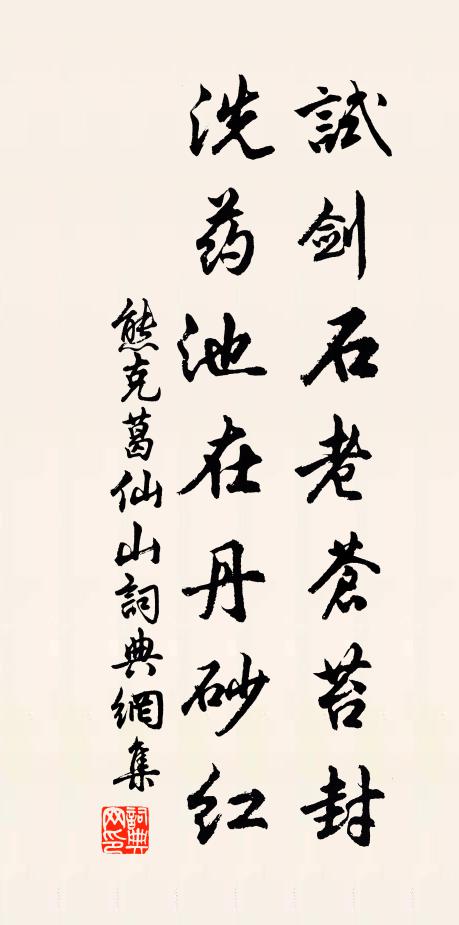 試劍石老蒼苔封
洗药池在丹砂红
熊克葛仙山詞典網集
詞典网印